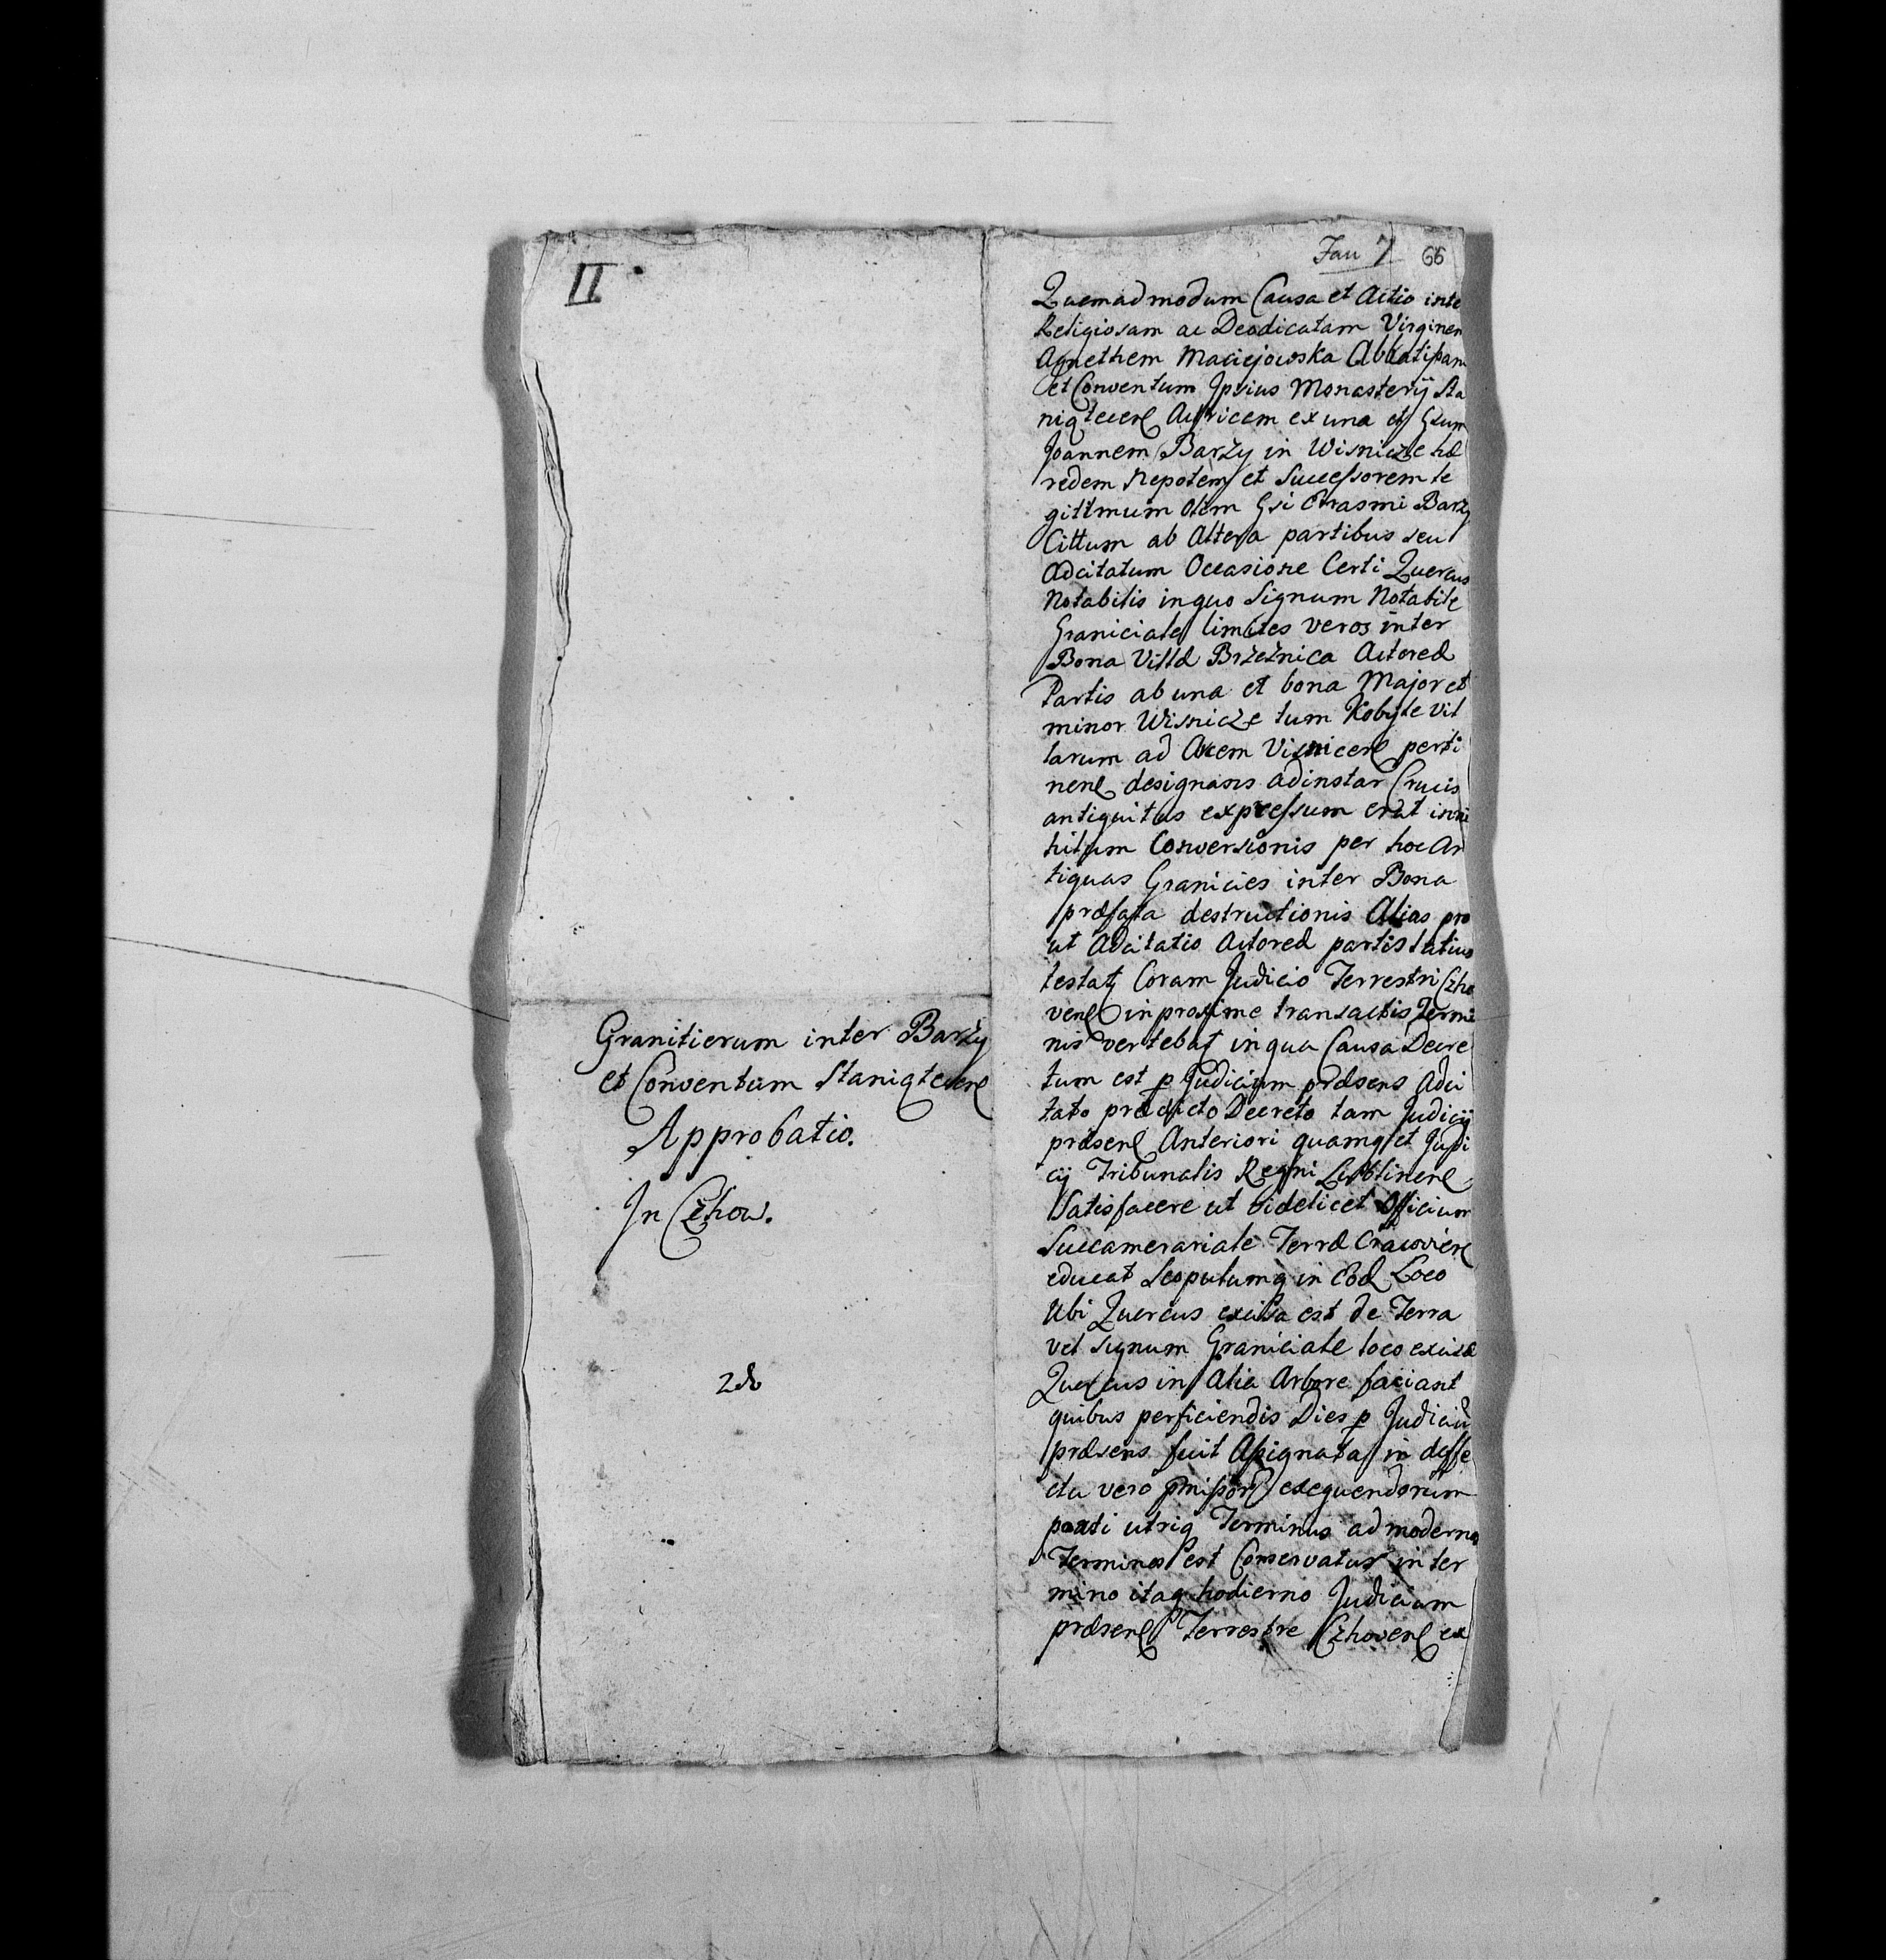 II
Granitierum inter Barzy
et Conventum Staniątecen
Approbatio.
In Czhow.
2do
Fau 7 66
Quemadmodum Causa et Actio inte
Religiosam ac Deodicatam Virginem
Agnethem Maciejowska Abbatißam
et Conventum Ipsius Monasterÿ Sta
niątecen Actricem ex una et Gsum
Joannem Barzy in Wisnicze hæ
redem Nepotem et Successorem le
gittmum Olim Gsi Erasmi Barzy
Cittum ab Altera partibus seu
Adcitatum Occasione Certi Quercus
Notabilis in quo Signum Notabile
Graniciale limites veros inter
Bona Villæ Brzeżnica Actoreæ
Partis ab una et bona Major et
minor Wisnicze tum Kobyle vil
larum ad Arcem Visnicen perti
nen designans adinstar Crucis
antiquitus expressum erat in ni
hilum Conversionis per hoc An
tiquas Granicies inter Bona
præfata destructionis Alias pro
ut Adcitatio Actoreæ partis latius
testat Coram Judicio Terrestri Czho
ven in proxime transactis Termi
nis vertebat in qua Causa Decre
tum est p Judicium præsens Adci
tato prædicto Decreto tam Judicÿ
præsen Anteriori quamq et Judi
cÿ Tribunalis Regni Lublinen
Satisfacere ut videlicet Officium
Succamerariale Terræ Cracovien
educat Scopulumq in Eod Loco
Ubi Quercus excisa est de Terra
vel signum Graniciale loco excisæ
Quercus in Alia Arbore faciant
quibus perficiendis Dies p Judiciū
præsens fuit Assignata in deffe
ctu vero pmissor exequendorum
parti utriq Terminus ad modernos
Terminos est Conservatus in ter
mino itaq hodierno Judicium
præsen Terrestre Czhoven ex